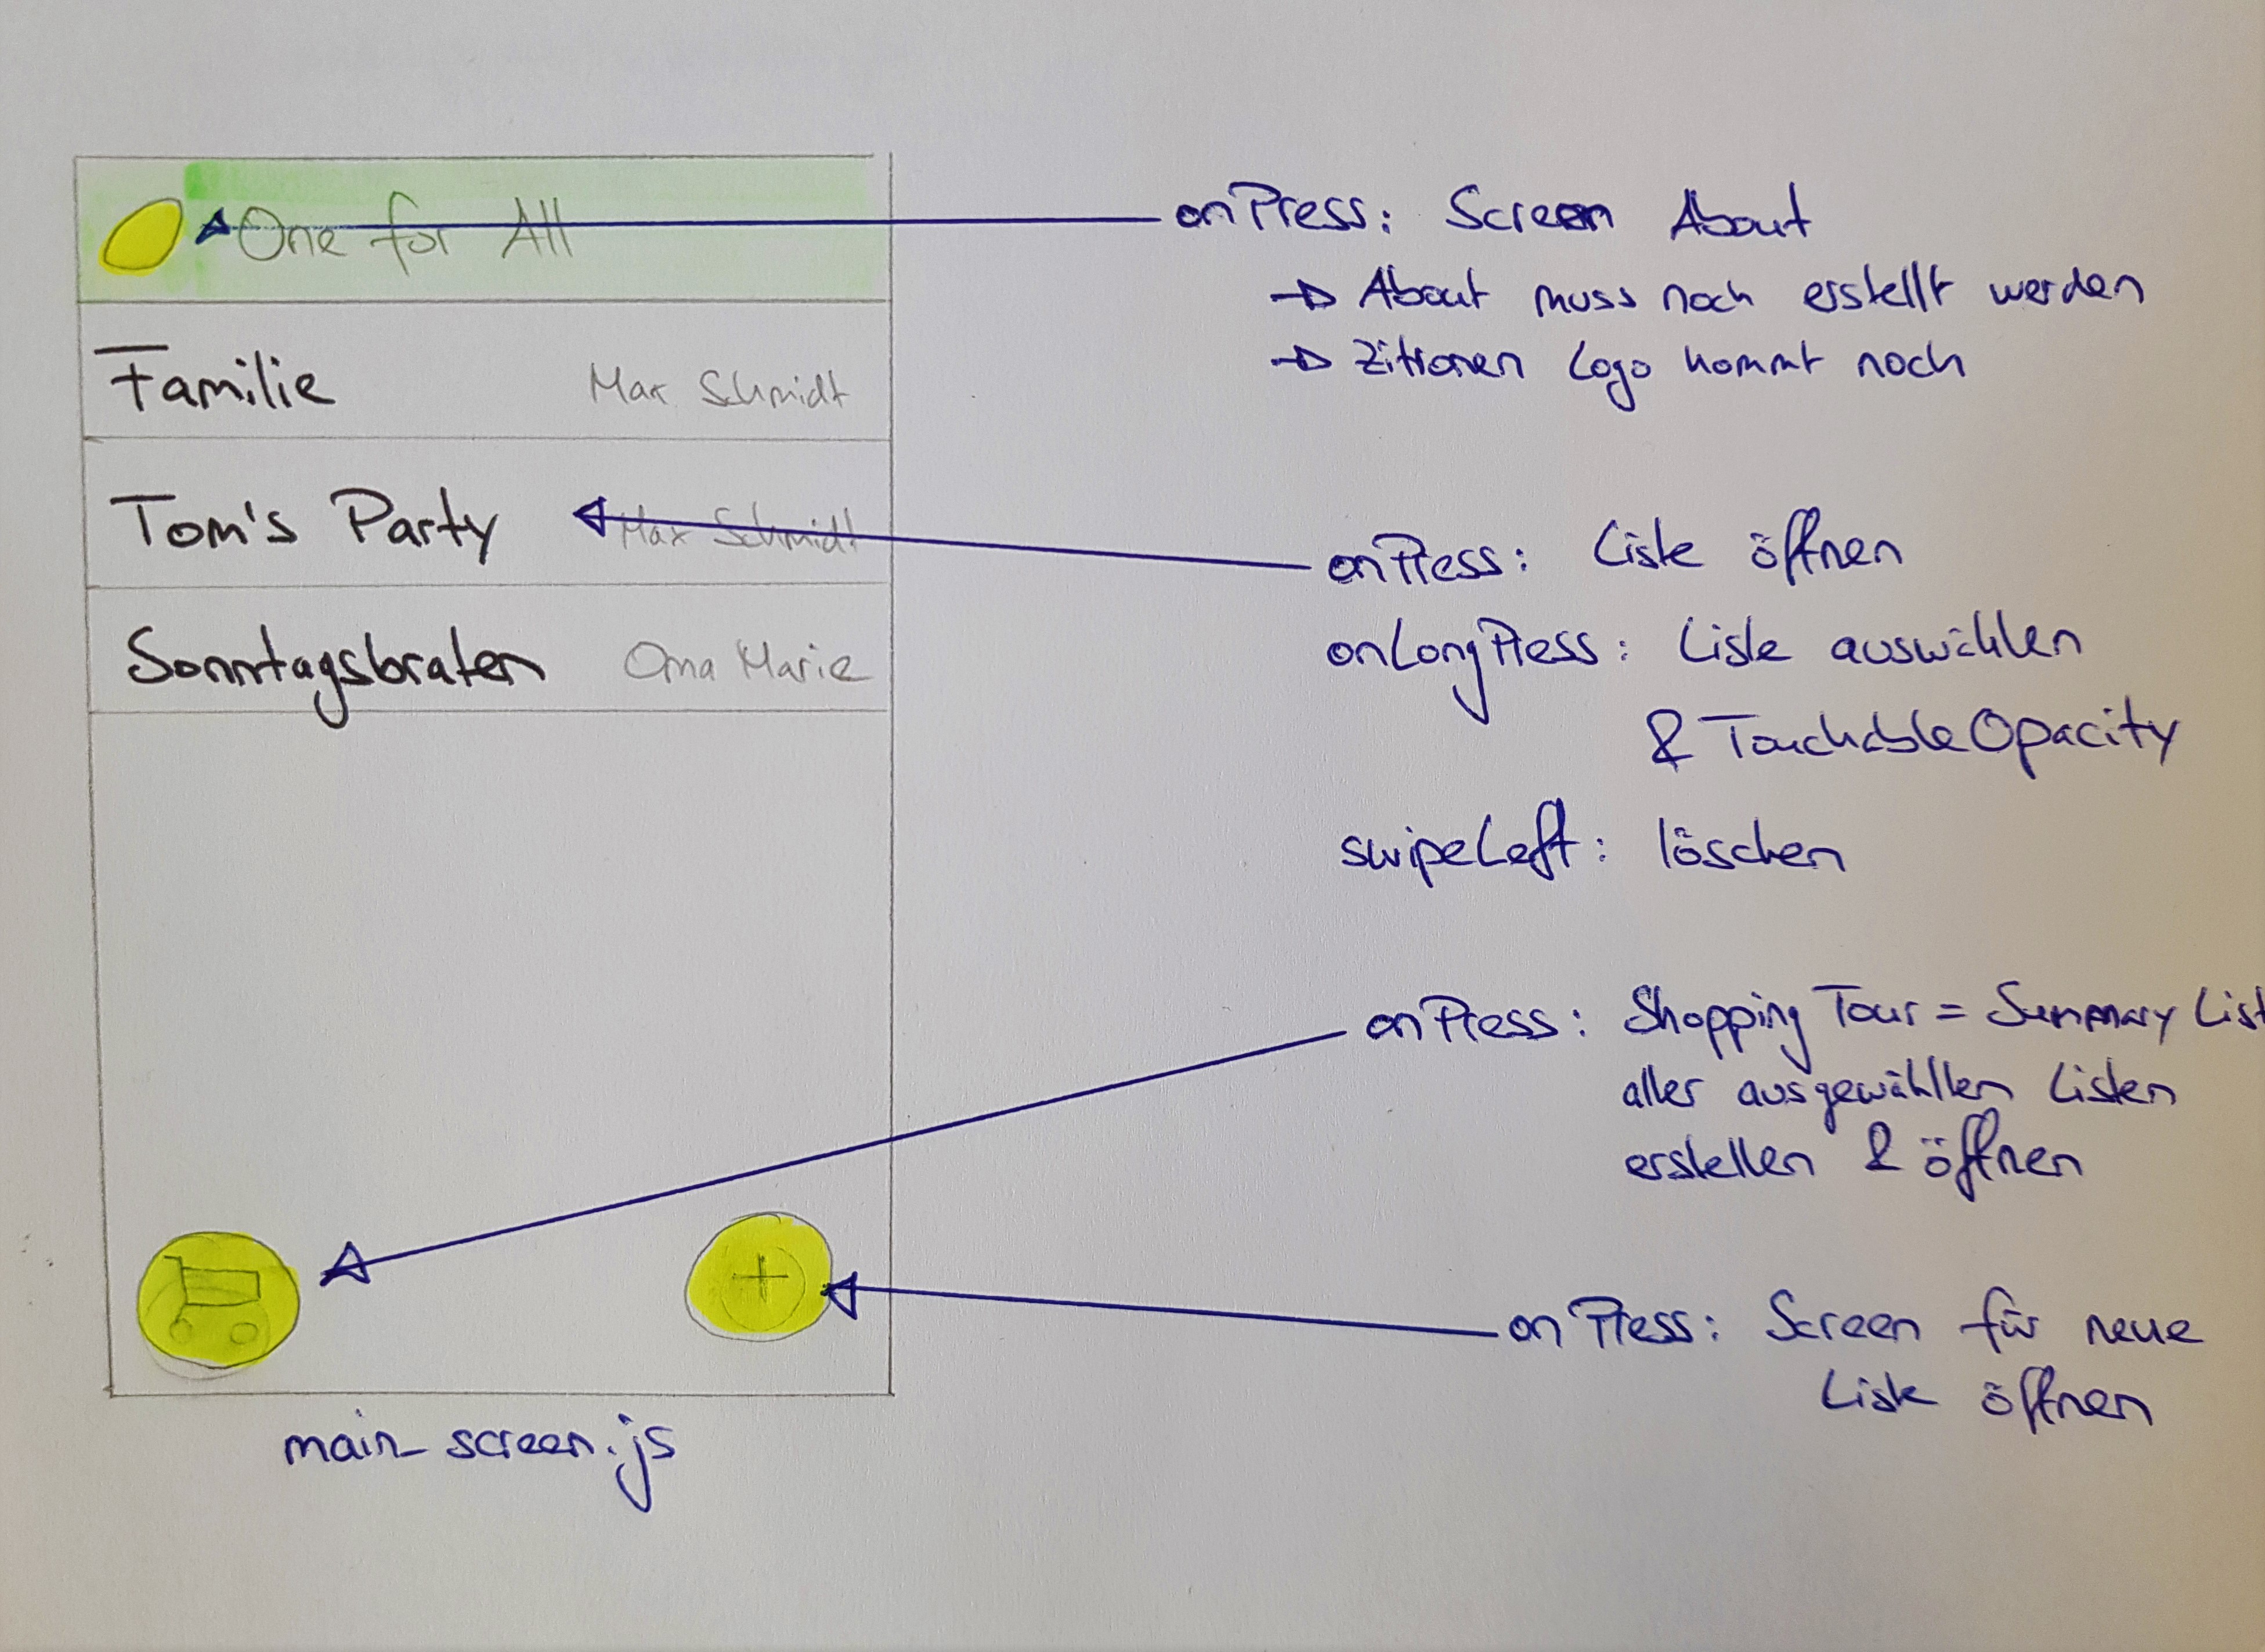 One for All
Familie Max Schmidt
Tom's Party Max Schmidt
Sonntagsbraten Oma Marie
+
main_screen.js
onPress: Screen About
→ About muss noch erstellt werden
→ Zitronen Logo kommt noch
onPress: Liste öffnen
onLongPress: Liste auswählen
& TouchableOpacity
swipeLeft: löschen
onPress: Shopping Tour = Summary List
aller ausgewählten Listen
erstellen & öffnen
onPress: Screen für neue
Liste öffnen